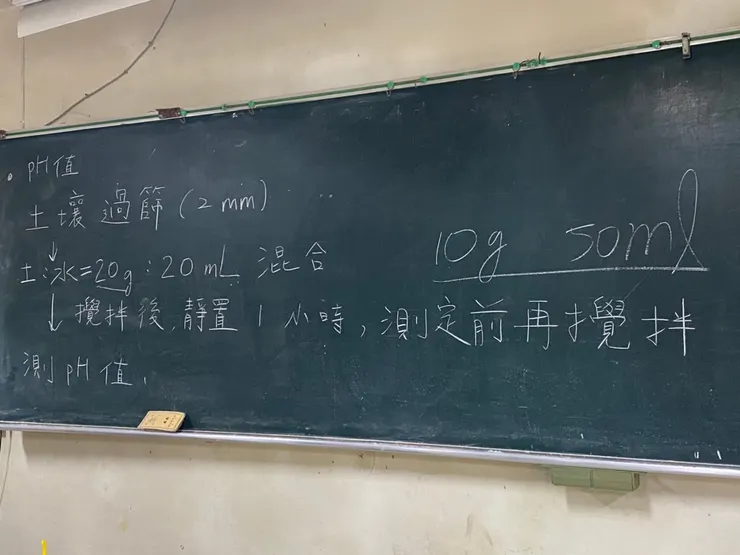 • pH值
土壤過篩(2mm)
↓
土:水=20g:20mL 混合
↓ 攪拌後,靜置1小時,測定前再攪拌
測pH值.
10g 50ml